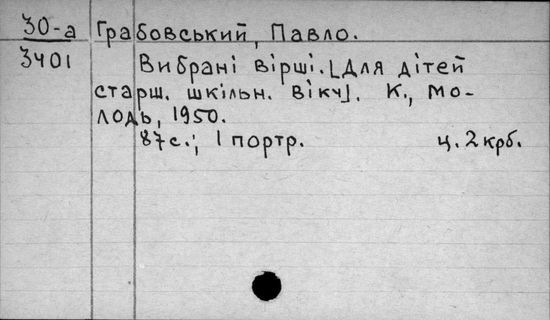 30-а Грабовський, Павло.
3401 Вибрані вірші. [Для дітей
старш. шкільн. віку]. К., Мо-
лодь, 1950.
87с.; 1 портр. ц. 2 крб.